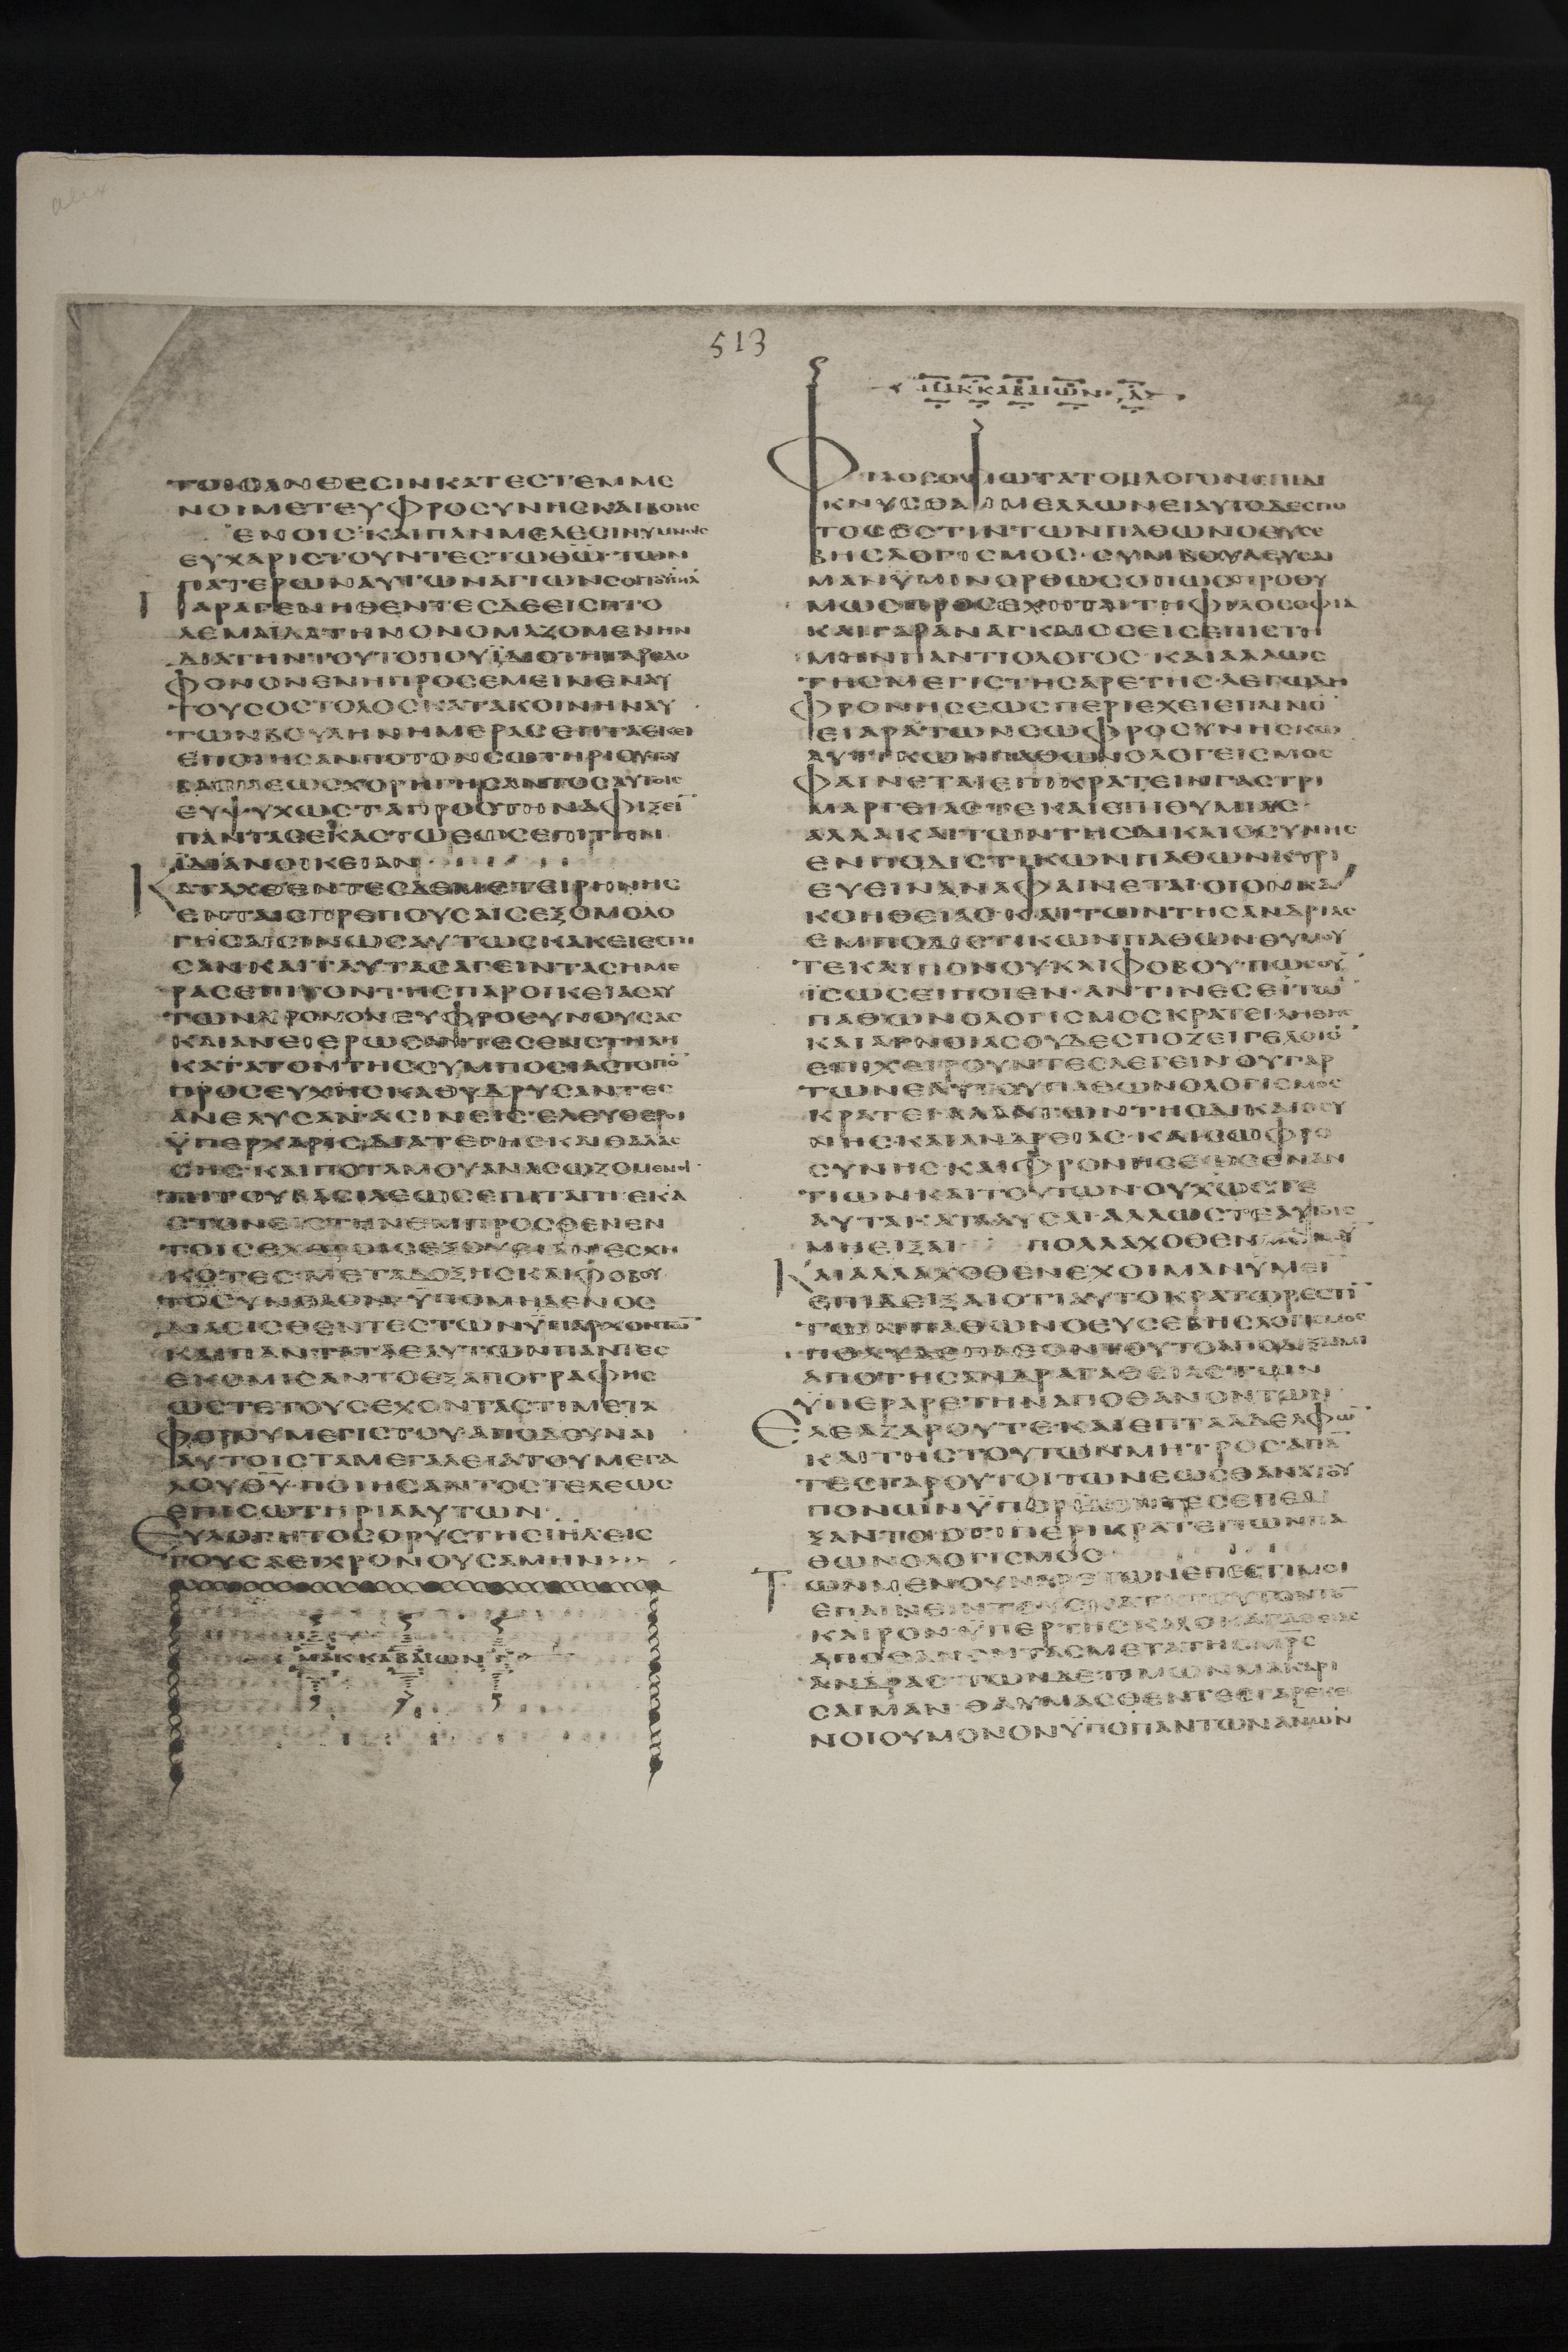 alex
513
ΤΟΙϹΑΝΘΕϹΙΝΚΑΤΕϹΤΕΜΜΕ
ΝΟΙΜΕΤΕΥΦΡΟϹΥΝΗϹΚΑΙΒΟΗϹ
ΕΝΟΙϹ ΚΑΙΠΑΝΜΕΛΕϹΙΝΥΜΝΟΙϹ
ΕΥΧΑΡΙϹΤΟΥΝΤΕϹΤΩΘΩ ΤΩΝ
ΠΑΤΕΡΩΝΑΥΤΩΝΑΓΙΩΝ
ΠΑΡΑΓΕΝΗΘΕΝΤΕϹΔΕΕΙϹΠΤΟ
ΛΕΜΑΪΔΑΤΗΝΟΝΟΜΑΖΟΜΕΝΗΝ
ΔΙΑΤΗΝΤΟΥΤΟΠΟΥΪΔΙΟΤΗΤΑΡΟΔΟ
ΦΟΝΟΝΕΝΗΠΡΟϹΕΜΕΙΝΕΝΑΥ
ΤΟΥϹΟϹΤΟΛΟϹΚΑΤΑΚΟΙΝΗΝΑΥ
ΤΩΝΒΟΥΛΗΝΗΜΕΡΑϹΕΠΤΑΕΚΕΙ
ΕΠΟΙΗϹΑΝΠΟΤΟΝϹΩΤΗΡΙΟΥΤΟΥ
ΒΑϹΙΛΕΩϹΧΟΡΗΓΗϹΑΝΤΟϹΑΥΤΟΙϹ
ΕΥΨΥΧΩϹΤΑΠΡΟϹΤΗΝΑΦΙΞΕΙ̅
ΠΑΝΤΑΕΚΑϹΤΩΕΩϹΕΠΙΤΗΝ
ΪΔΙΑΝΟΙΚΕΙΑΝ
ΚΑΤΑΧΘΕΝΤΕϹΔΕΜΕΤΕΙΡΗΝΗϹ
ΕΝΤΑΙϹΠΡΕΠΟΥϹΑΙϹΕΞΟΜΟΛΟ
ΓΗϹΕϹΙΝΩϹΑΥΤΩϹΚΑΚΕΙΕϹΤΗ
ϹΑΝΚΑΙΤΑΥΤΑϹΑΓΕΙΝΤΑϹΗΜΕ
ΡΑϹΕΠΙΤΟΝΤΗϹΠΑΡΟΙΚΕΙΑϹΑΥ
ΤΩΝΧΡΟΝΟΝΕΥΦΡΟϹΥΝΟΥϹΑϹ
ΚΑΙΑΝΕΙΕΡΩϹΑΝΤΕϹΕΝϹΤΗΛΗ
ΚΑΤΑΤΟΝΤΗϹϹΥΜΠΟϹΙΑϹΤΟΠΟ̅
ΠΡΟϹΕΥΧΗϹΚΑΘΥΔΡΥϹΑΝΤΕϹ
ΑΝΕΛΥϹΑΝ ΑϹΙΝΕΙϹ ΕΛΕΥΘΕΡΟΙ
ΫΠΕΡΧΑΡΙϹΔΙΑΤΕΓΗϹΚΑΙΘΑΛΑϹ
ϹΗϹ ΚΑΙΠΟΤΑΜΟΥΑΝΑϹΩΖΟΜΕΝΟΙ
ΤΗΤΟΥΒΑϹΙΛΕΩϹΕΠΙΤΑΓΗΕΚΑ
ϹΤΟΝΕΙϹΤΗΝΕΜΠΡΟϹΘΕΝΕΝ
ΤΟΙϹΕΧΘΡΟΙϹΕΞΟΥϹΙΑΝΕϹΧΗ
ΚΟΤΕϹ ΜΕΤΑΔΟΞΗϹΚΑΙΦΟΒΟΥ
ΤΟϹΥΝΟΛΟΝ ΫΠΟΜΗΔΕΝΟϹ
ΔΙΑϹΙϹΘΕΝΤΕϹΤΩΝΫΠΑΡΧΟΝΤΩ̅
ΚΑΙΠΑΝΤΑΤΑΕΑΥΤΩΝΠΑΝΤΕϹ
ΕΚΟΜΙϹΑΝΤΟΕΞΑΠΟΓΡΑΦΗϹ
ΩϹΤΕΤΟΥϹΕΧΟΝΤΑϹΤΙΜΕΤΑ
ΦΟΒΟΥΜΕΓΙϹΤΟΥΑΠΟΔΟΥΝΑΙ
ΑΥΤΟΙϹΤΑΜΕΓΑΛΕΙΑΤΟΥΜΕΓΑ
ΛΟΥΘΥ ΠΟΙΗϹΑΝΤΟϹΤΕΛΕΩϹ
ΕΠΙϹΩΤΗΡΙΑΑΥΤΩΝ
ΕΥΛΟΓΗΤΟϹΟΡΥϹΤΗϹΙΗΛΕΙϹ
ΤΟΥϹΑΕΙΧΡΟΝΟΥϹΑΜΗΝ
ΜΑΚΚΑΒΑΙΩΝ Γ
ΜΑΚΚΑΒΑΙΩΝ Δ
ΦΙΛΟϹΟΦΙΩΤΑΤΟΝΛΟΓΟΝΕΠΙΔΙ
ΚΝΥϹΘΑΙΜΕΛΛΩΝΕΙΑΥΤΟΔΕϹΠΟ
ΤΟϹΕϹΤΙΝΤΩΝΠΑΘΩΝΟΕΥϹΕ
ΒΗϹΛΟΓΙϹΜΟϹ ϹΥΜΒΟΥΛΕΥϹΑΙ
ΜΑΝΫΜΙΝΟΡΘΩϹΟΠΩϹΠΡΟΘΥ
ΜΩϹΠΡΟϹΕΧΗΤΑΙΤΗΦΙΛΟϹΟΦΙΑ
ΚΑΙΓΑΡΑΝΑΓΚΑΙΟϹΕΙϹΕΠΙϹΤΗ
ΜΗΝΠΑΝΤΙΟΛΟΓΟϹ ΚΑΙΑΛΛΩϹ
ΤΗϹΜΕΓΙϹΤΗϹΑΡΕΤΗϹ ΛΕΓΩΔΗ
ΦΡΟΝΗϹΕΩϹΠΕΡΙΕΧΕΙΕΠΑΙΝΟ̅
ΕΙΑΡΑΤΩΝϹΩΦΡΟϹΥΝΗϹΚΩ
ΛΥΤΙΚΩΝΠΑΘΩΝΟΛΟΓΕΙϹΜΟϹ
ΦΑΙΝΕΤΑΙΕΠΙΚΡΑΤΕΙΝΓΑϹΤΡΙ
ΜΑΡΓΕΙΑϹΤΕΚΑΙΕΠΙΘΥΜΙΑϹ
ΑΛΛΑΚΑΙΤΩΝΤΗϹΔΙΚΑΙΟϹΥΝΗϹ
ΕΝΠΟΔΙϹΤΙΚΩΝΠΑΘΩΝΚΥΡΙ
ΕΥΕΙΝΑΝΑΦΑΙΝΕΤΑΙ ΟΙΟΝΚΑ
ΚΟΗΘΕΙΑϹ ΚΑΙΤΩΝΤΗϹΑΝΔΡΙΑϹ
ΕΜΠΟΔΙϹΤΙΚΩΝΠΑΘΩΝΘΥΜΟΥ
ΤΕΚΑΙΠΟΝΟΥΚΑΙΦΟΒΟΥ ΠΩϹΟΥ̅
ΪϹΩϹΕΙΠΟΙΕΝ ΑΝΤΙΝΕϹΕΙΤΩ̅
ΠΑΘΩΝΟΛΟΓΙϹΜΟϹΚΡΑΤΕΙΛΗΘΗϹ
ΚΑΙΑΓΝΟΙΑϹΟΥΔΕϹΠΟΖΕΙΓΕΛΟΙΟ̅
ΕΠΙΧΕΙΡΟΥΝΤΕϹΛΕΓΕΙΝ ΟΥΓΑΡ
ΤΩΝΕΑΥΤΟΥΠΑΘΩΝΟΛΟΓΙϹΜΟϹ
ΚΡΑΤΕΙΑΛΛΑΤΩΝΤΗϹΔΙΚΑΙΟϹΥ
ΝΗϹΚΑΙΑΝΔΡΕΙΑϹ ΚΑΙϹΩΦΡΟ
ϹΥΝΗϹ ΚΑΙΦΡΟΝΗϹΕΩϹΕΝΑΝ
ΤΙΩΝΚΑΙΤΟΥΤΩΝΟΥΧΩϹΤΕ
ΑΥΤΑΚΑΤΑΛΥϹΑΙ ΑΛΛΩϹΤΕΑΥΤΟΙϹ
ΜΗΕΙΞΑΙ ΠΟΛΛΑΧΟΘΕΝ
ΚΑΙΑΛΛΑΧΟΘΕΝΕΧΟΙΜΑΝΥΜΕΙ̅
ΕΠΙΔΕΙΞΑΙΟΤΙΑΥΤΟΚΡΑΤΩΡΕϹΤΙ̅
ΤΩΝΠΑΘΩΝΟΕΥϹΕΒΗϹΛΟΓΙϹΜΟϹ
ΠΟΛΥΔΕΠΛΕΟΝΤΟΥΤΟΑΠΟΔΙΞΑΙΜΙ
ΑΠΟΤΗϹΑΝΔΡΑΓΑΘΕΙΑϹΤΩΝ
ΫΠΕΡΑΡΕΤΗΝΑΠΟΘΑΝΟΝΤΩΝ
ΕΛΕΑΖΑΡΟΥΤΕ ΚΑΙΕΠΤΑΑΔΕΛΦΩ̅
ΚΑΙΤΗϹΤΟΥΤΩΝΜΗΤΡΟϹ ΑΠΑ̅
ΤΕϹΓΑΡΟΥΤΟΙΤΩΝΕΩϹΘΑΝΑΤΟΥ
ΠΟΝΩΝΫΠΕΡΙΔΟΝΤΕϹΕΠΕΔΙ
ΞΑΝΤΟΟΤΙΠΕΡΙΚΡΑΤΕΙΤΩΝΠΑ
ΘΩΝΟΛΟΓΙϹΜΟϹ
ΤΩΝΜΕΝΟΥΝΑΡΕΤΩΝΕΠΕϹΤΙΜΟΙ
ΕΠΑΙΝΕΙΝΤΟΥϹΚΑΤΑΤΟΥΤΟΝΤΟ̅
ΚΑΙΡΟΝ ΫΠΕΡΤΗϹΚΑΛΟΚΑΓΑΘΕΙΑϹ
ΑΠΟΘΑΝΟΝΤΑϹΜΕΤΑΤΗϹΜΡϹ
ΑΝΔΡΑϹ ΤΩΝΔΕΤΙΜΩΝΜΑΚΑΡΙ
ϹΑΙΜΑΝ ΘΑΥΜΑϹΘΕΝΤΕϹΓΑΡΕΚΕΙ
ΝΟΙΟΥΜΟΝΟΝΫΠΟΠΑΝΤΩΝΑΝΩΝ